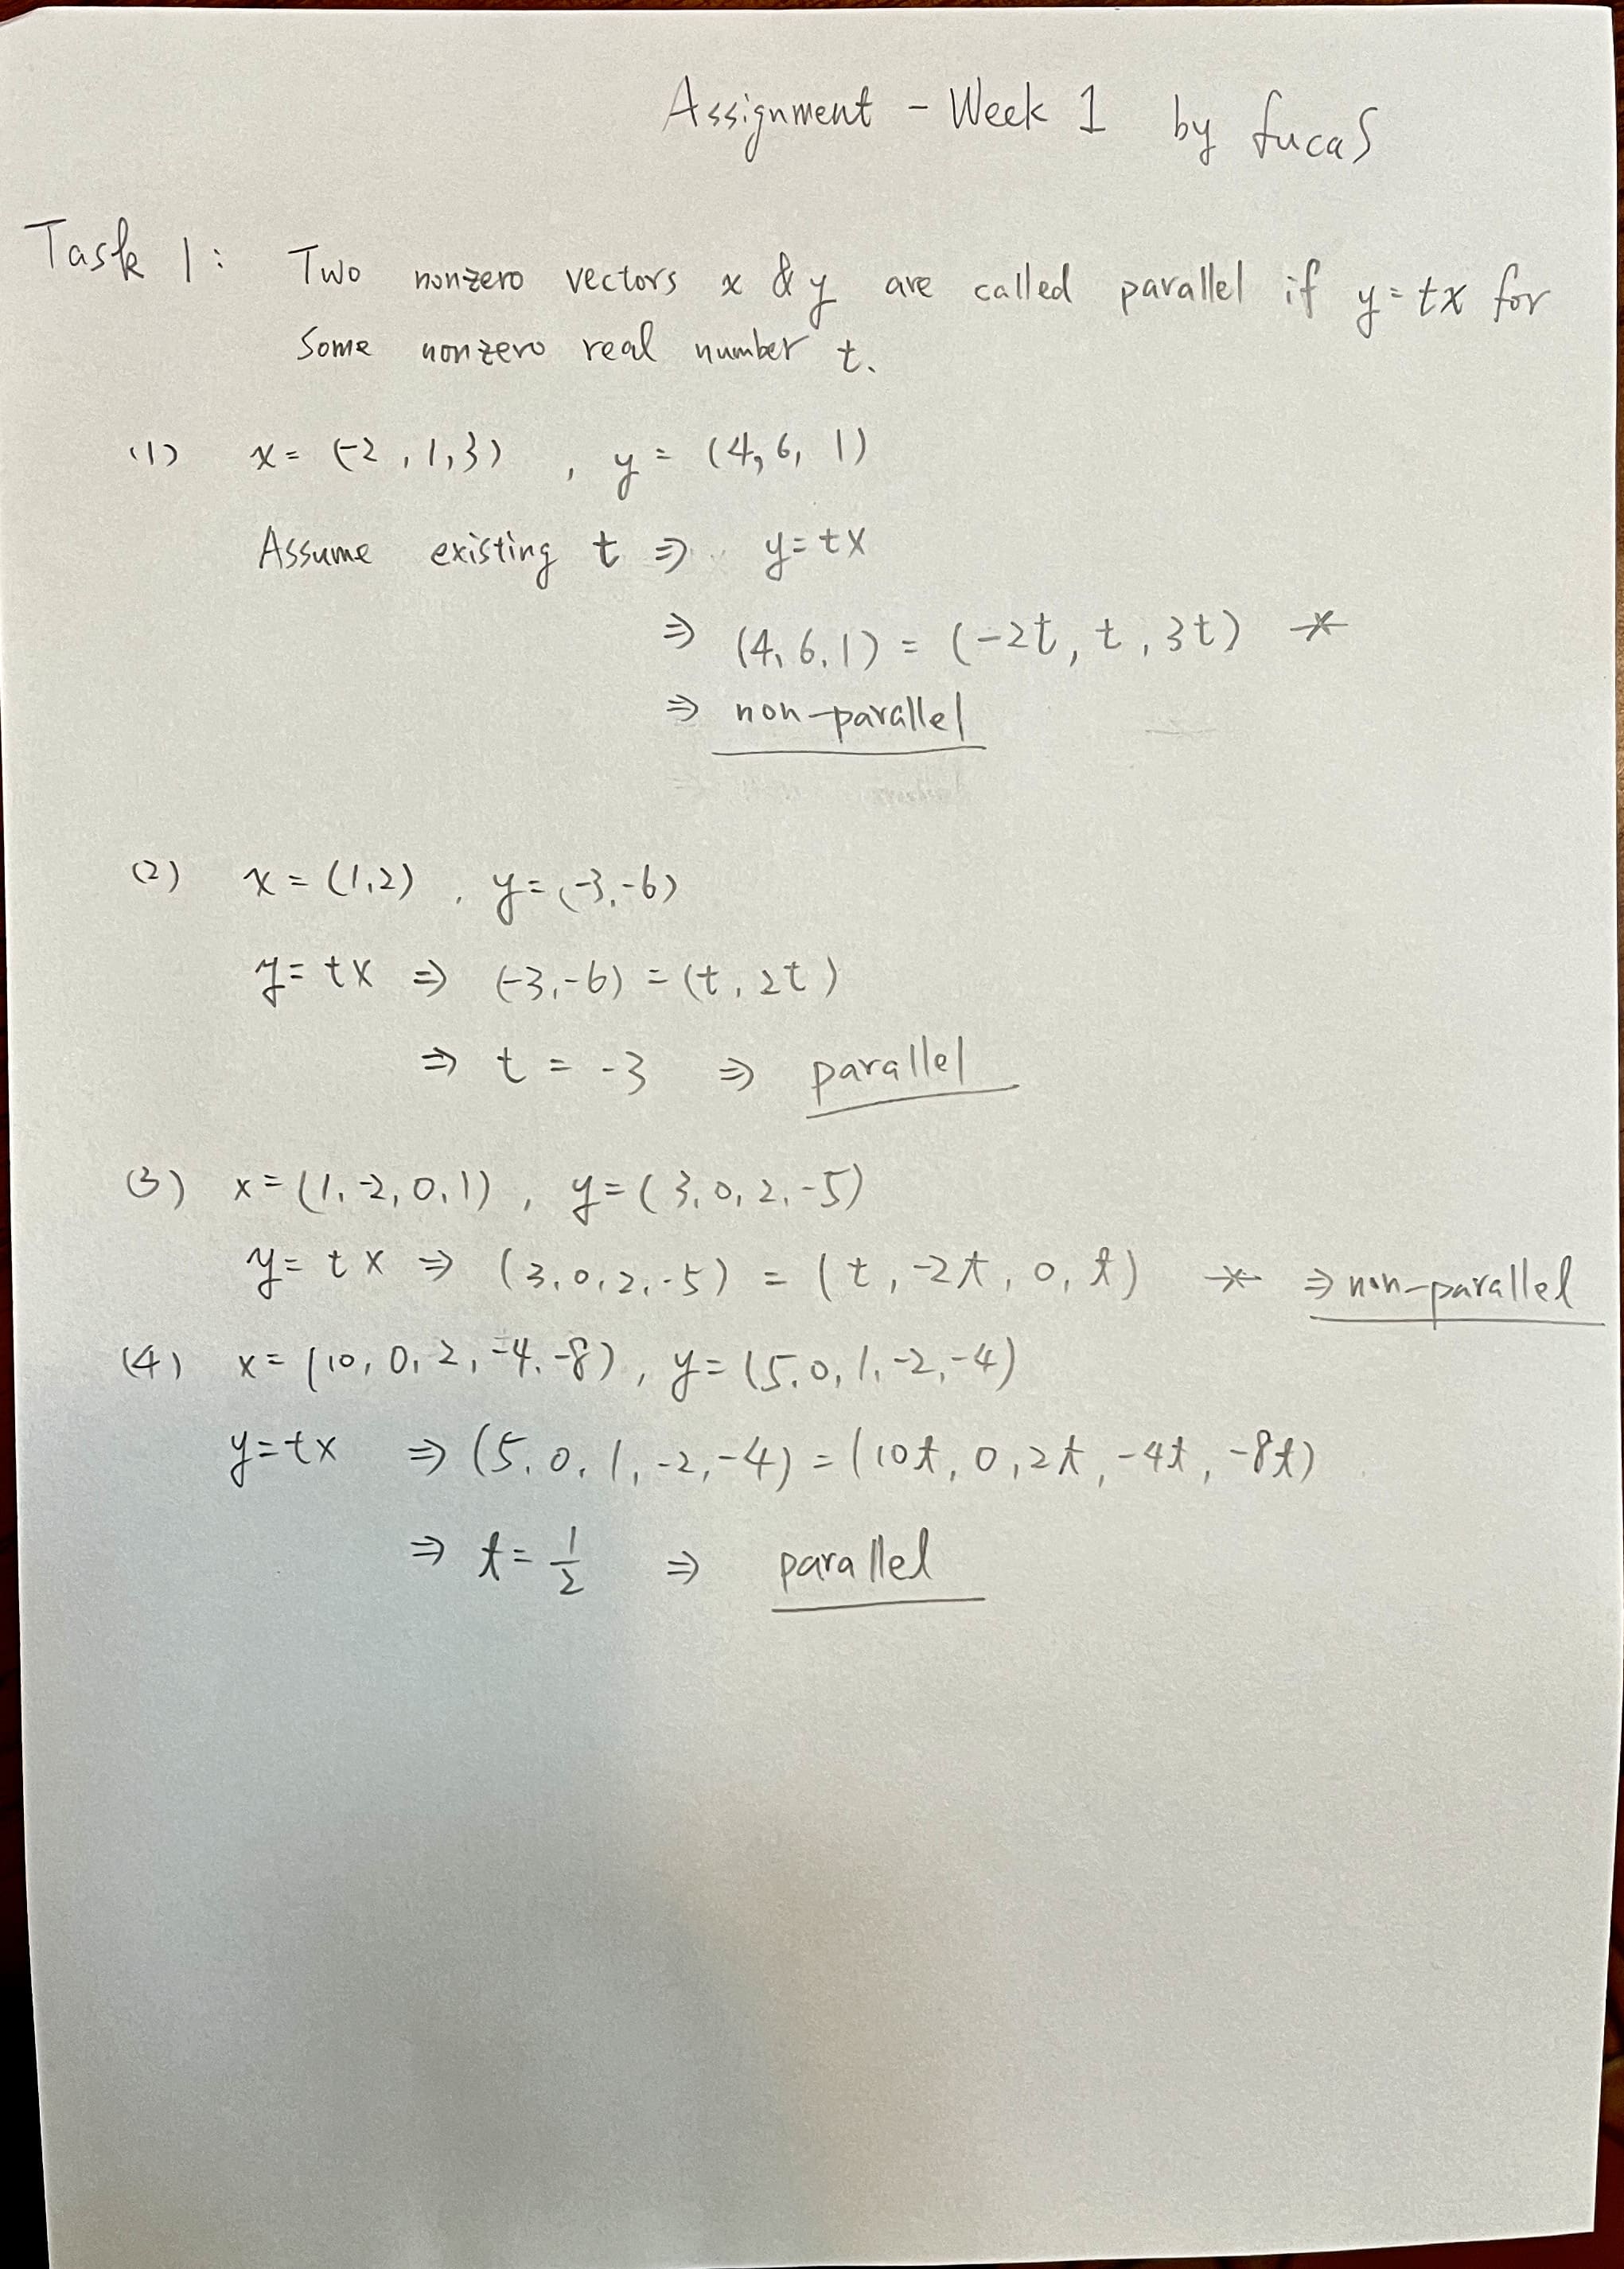 Assignment - Week 1 by Lucas
Task 1: Two nonzero vectors x & y are called parallel if y = tx for
some nonzero real number t.
(1) x = (-2, 1, 3), y = (4, 6, 1)
Assume existing t ⇒ y = tx
⇒ (4, 6, 1) = (-2t, t, 3t) ※
⇒ non-parallel
(2) x = (1, 2), y = (-3, -6)
y = tx ⇒ (-3, -6) = (t, 2t)
⇒ t = -3 ⇒ parallel
(3) x = (1, -2, 0, 1), y = (3, 0, 2, -5)
y = tx ⇒ (3, 0, 2, -5) = (t, -2t, 0, t) ※ ⇒ non-parallel
(4) x = (10, 0, 2, -4, -8), y = (5, 0, 1, -2, -4)
y = tx ⇒ (5, 0, 1, -2, -4) = (10t, 0, 2t, -4t, -8t)
⇒ t = 1/2 ⇒ parallel